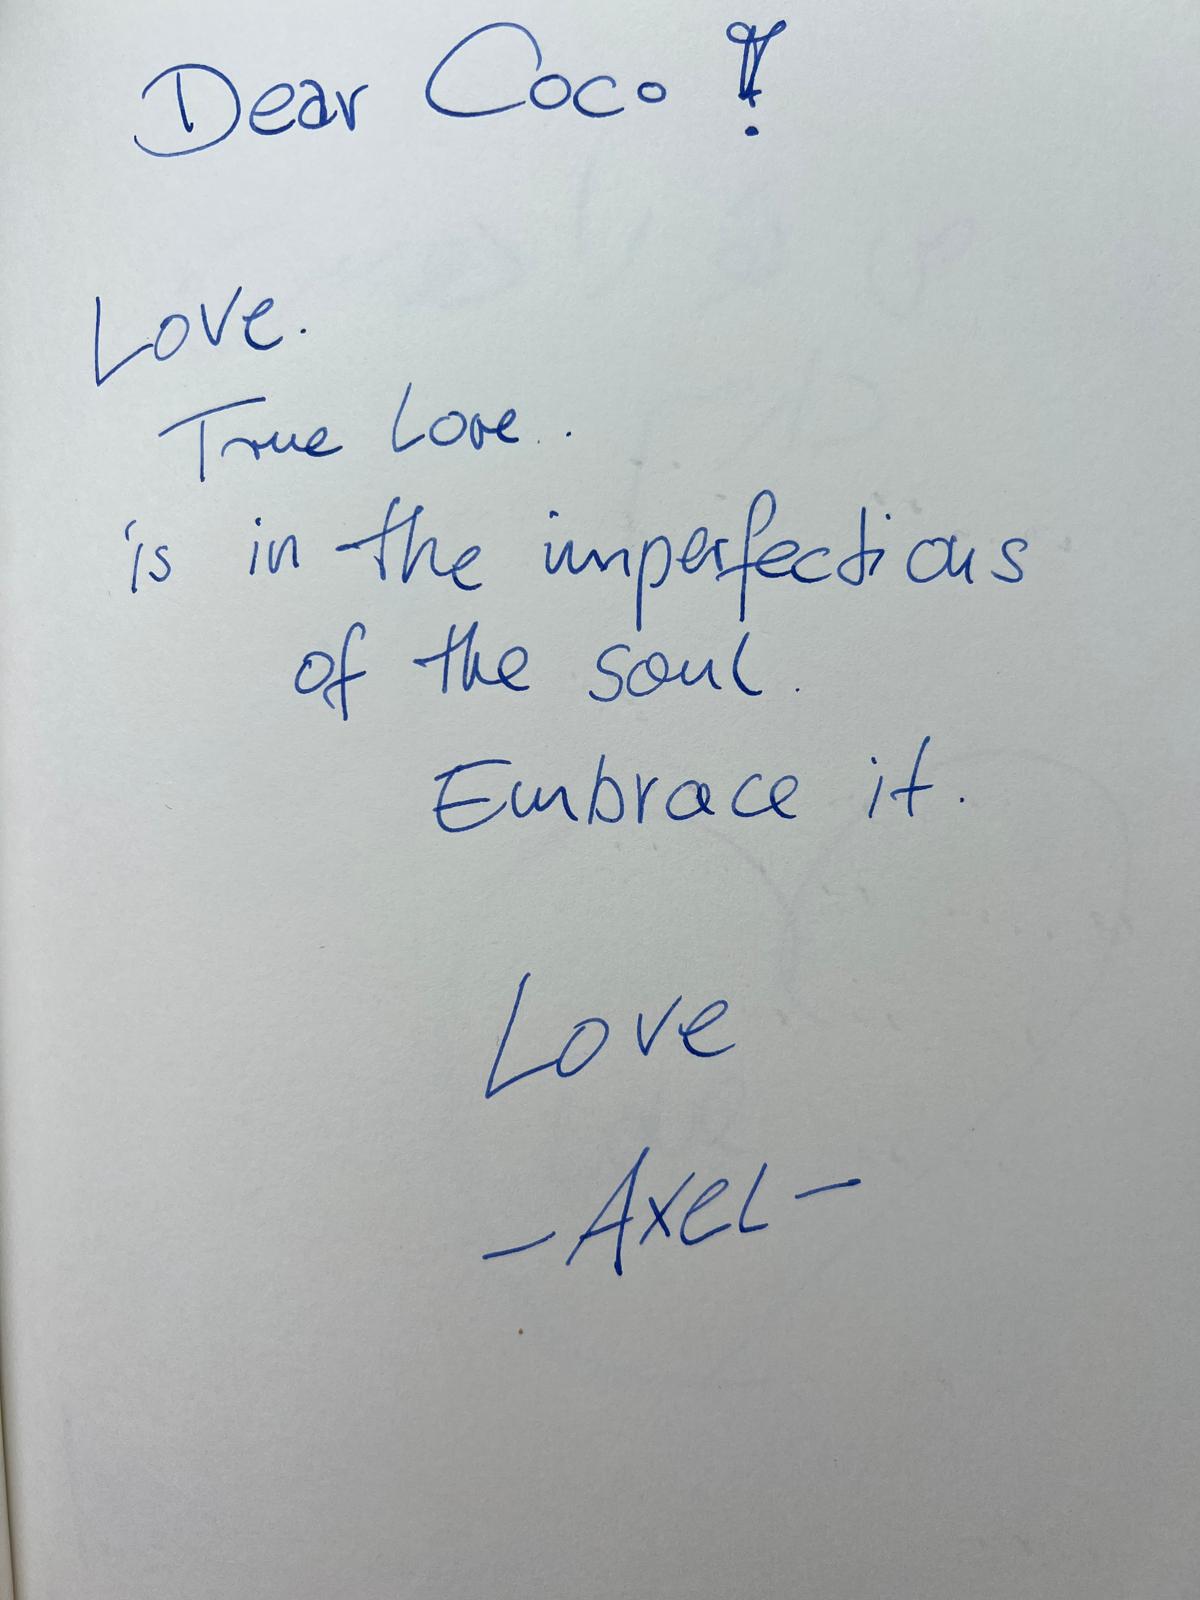 Dear Coco !
Love.
True Love..
is in the imperfections
of the soul.
Embrace it.
Love
- Axel -